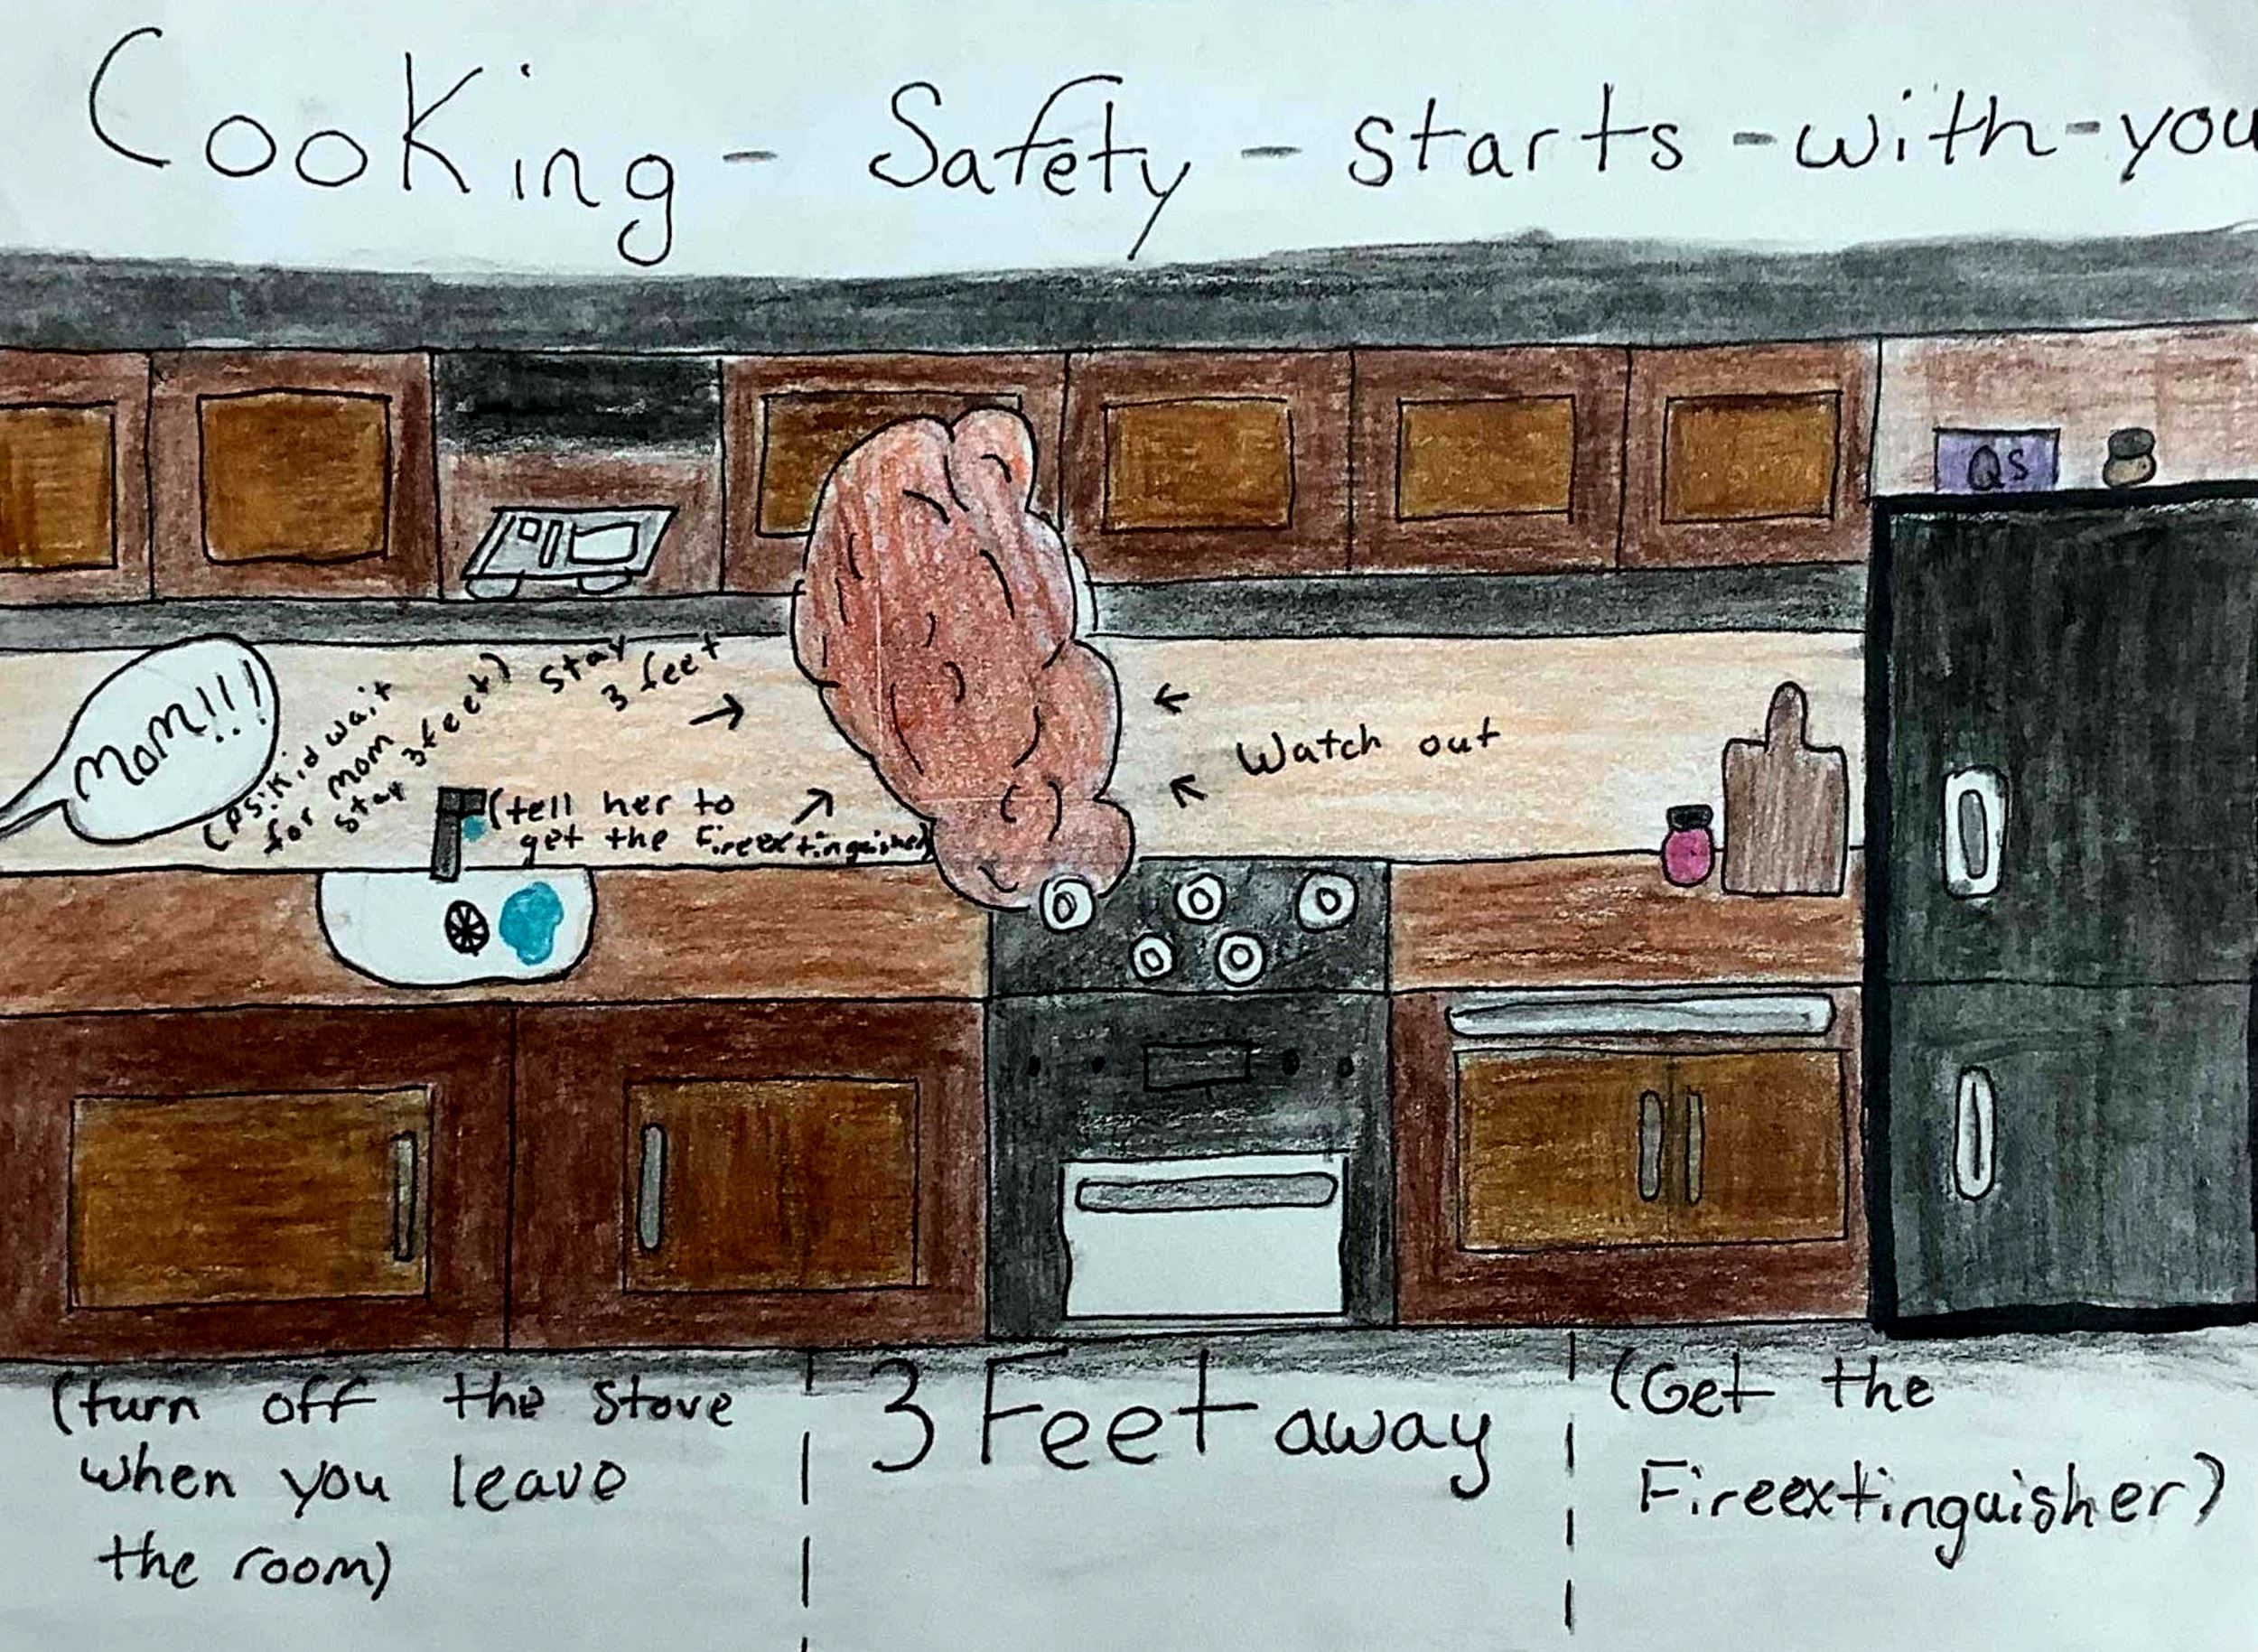 Cooking - Safety - starts - with - you
QS
Mom!!!
(Ps: Kid wait
for mom
stay 3 feet)
stay
3 feet
(tell her to
get the Fireextinguisher)
Watch out
(turn off the stove
when you leave
the room)
3 Feet away
(Get the
Fireextinguisher)